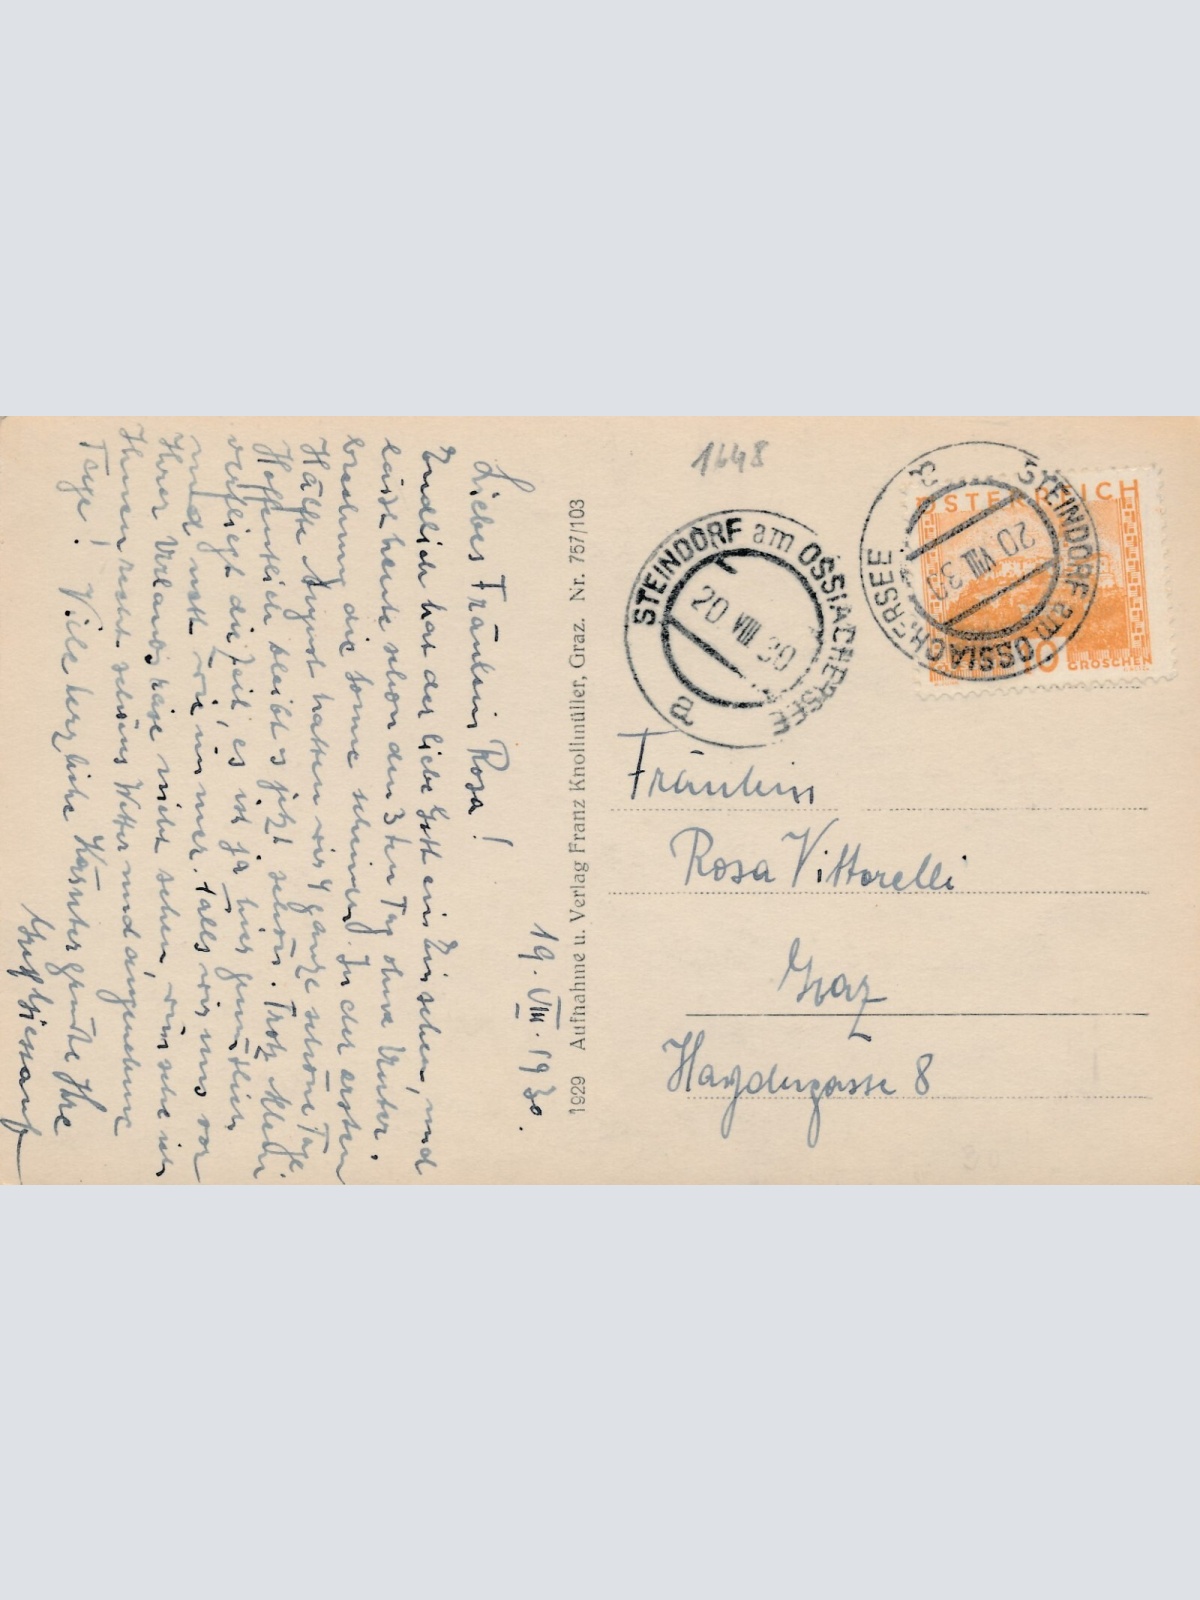 19. VIII. 1930.
Liebes Fräulein Rosa!
Endlich hat der liebe Gott ein Einsehen, und
lässt heute schon den 3ten Tag ohne Unter-
brechung die Sonne scheinen. In der ersten
Hälfte August hatten wir 4 ganze schöne Tage
Hoffentlich bleibt's jetzt schön. Trotz
verfliegt die Zeit, es ist ja hier
und nett wie immer. Falls wir uns vor
Ihrer Urlaubsreise nicht sehen, wünsche ich
Ihnen recht schönes Wetter und angenehme
Tage! Viele herzliche Kärntergrüße Ihre
1929 Aufnahme u. Verlag Franz Knollmüller, Graz. Nr. 757/103
1648
STEINDORF am OSSIACHERSEE
20 VIII 30
a
STEINDORF am OSSIACHERSEE
20 VIII 30
ÖSTERREICH
GROSCHEN
Fräulein
Rosa Vittorelli
Graz
Haydngasse 8